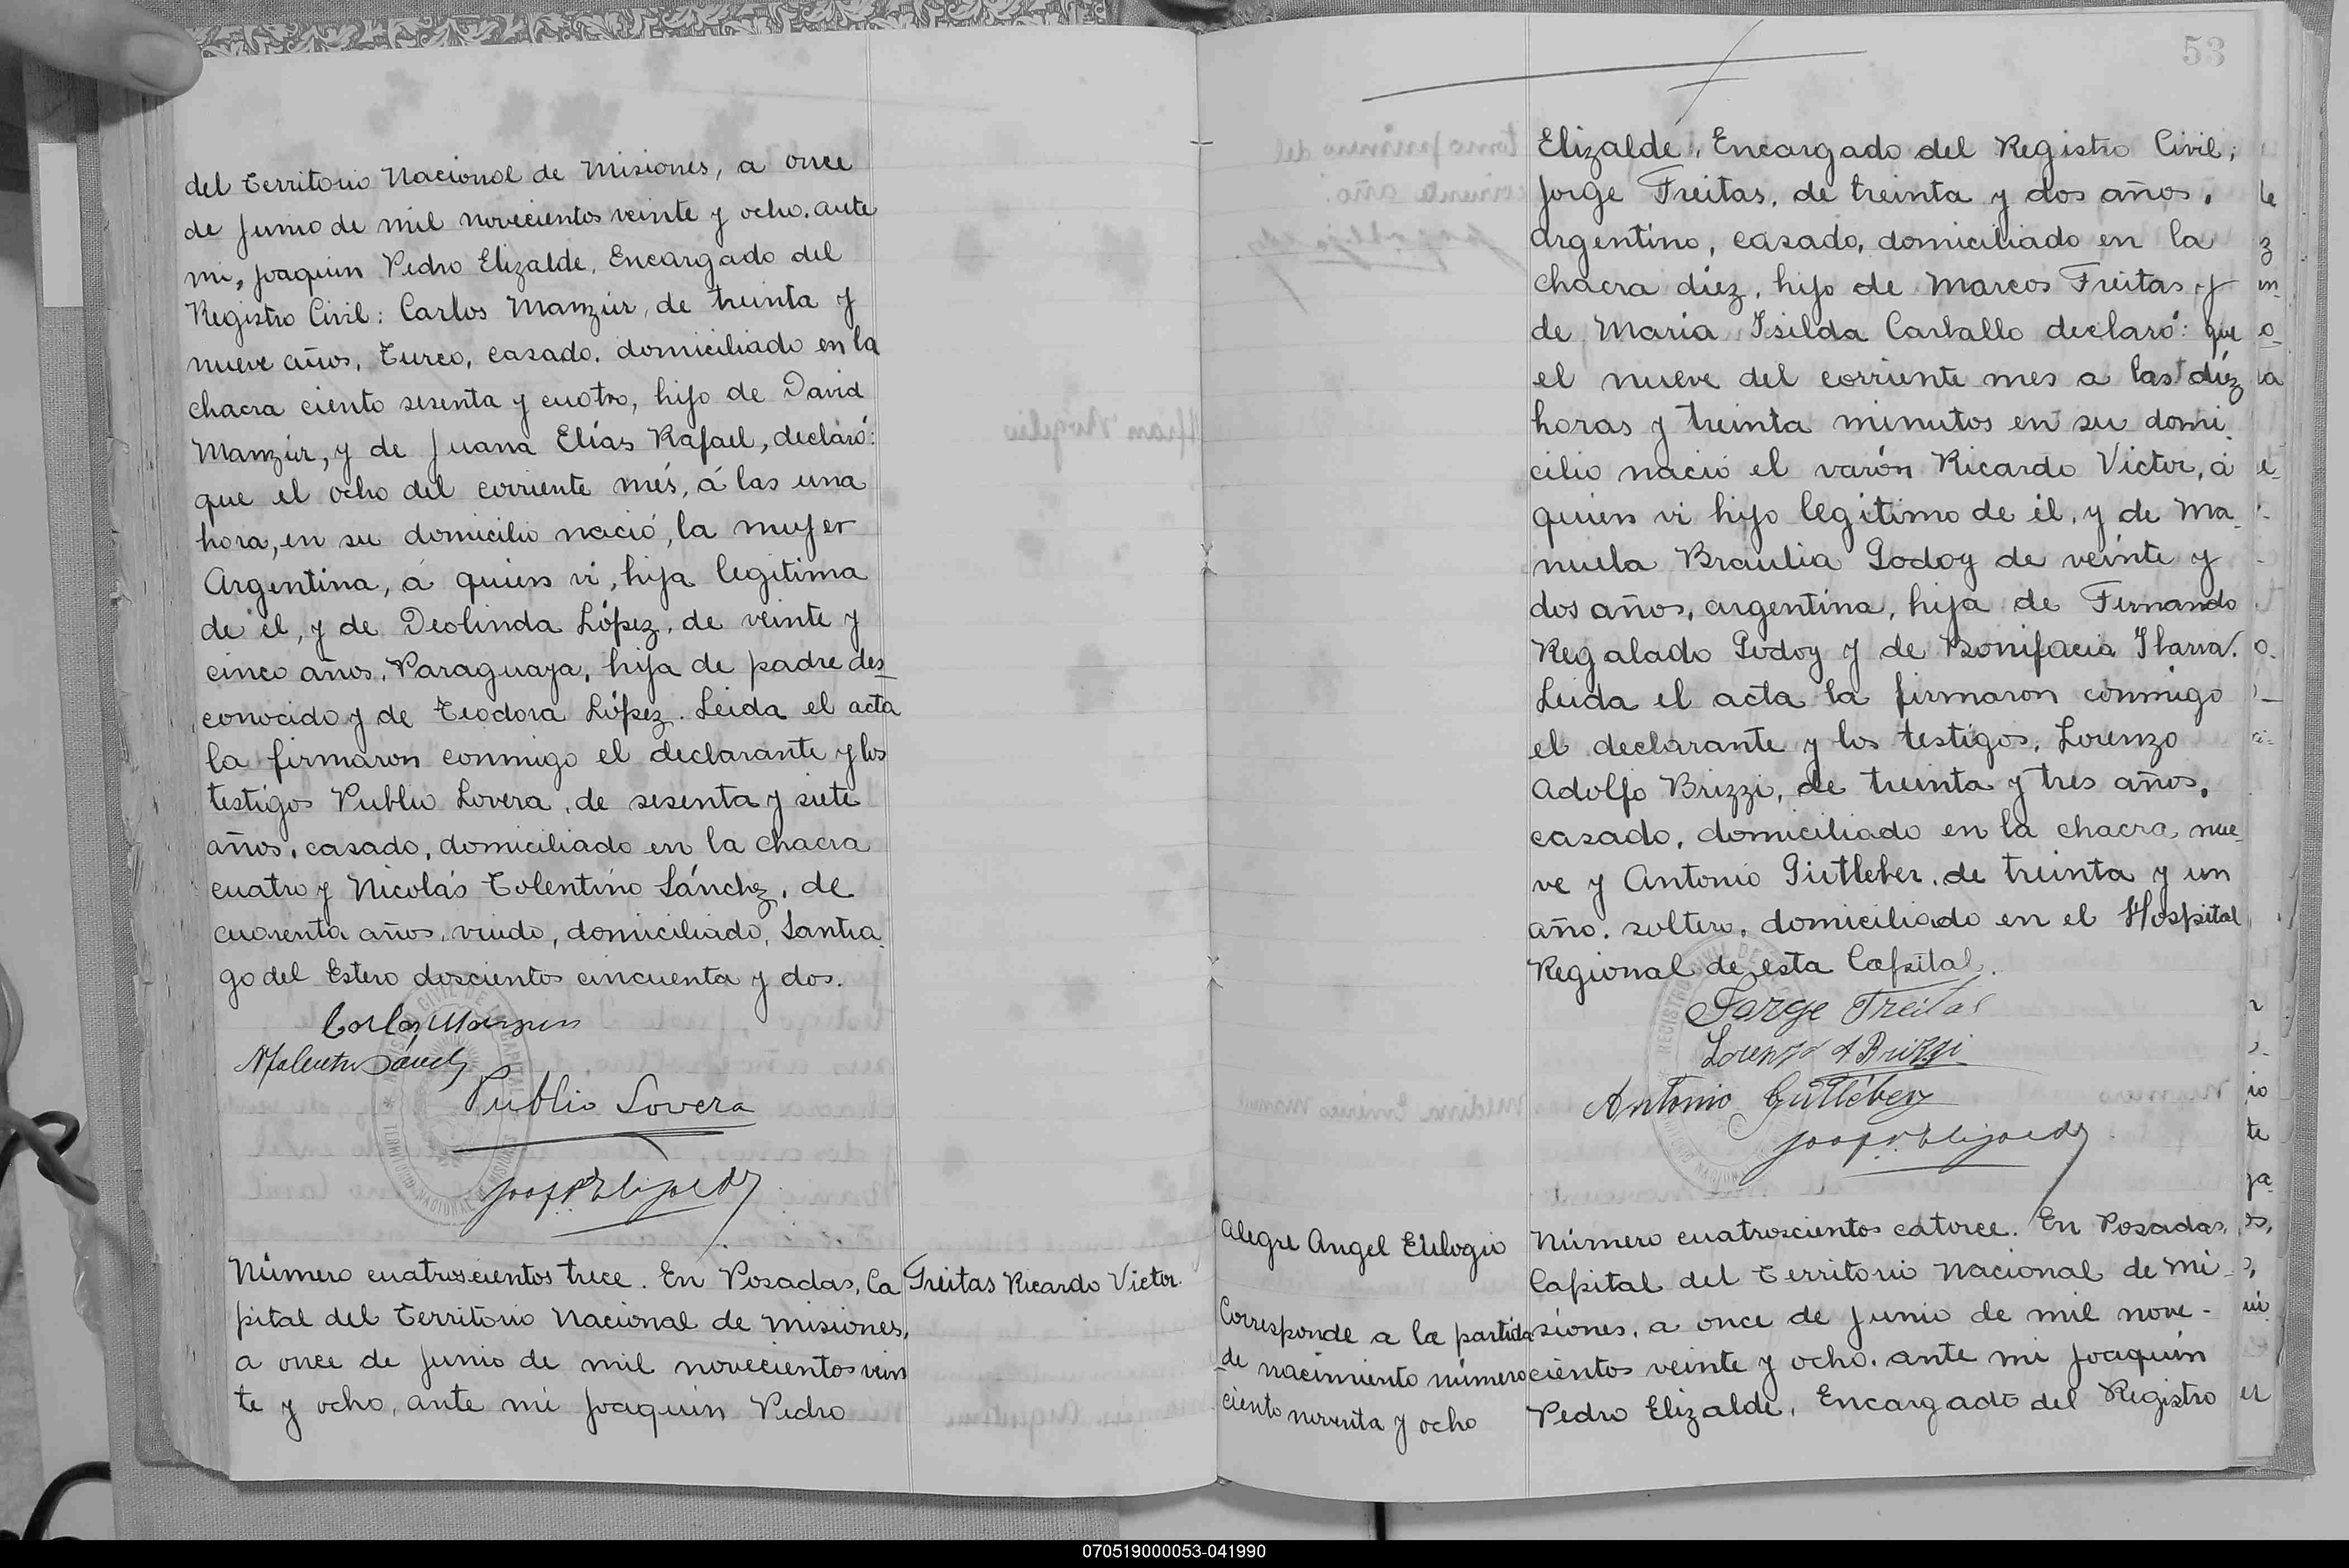 del Territorio Nacional de Misiones, a once
de Junio de mil novecientos veinte y ocho. ante
mi, Joaquin Pedro Elizalde, Encargado del
Registro Civil: Carlos Manzúr, de treinta y
nueve años, Turco, casado, domiciliado en la
chacra ciento sesenta y cuatro, hijo de David
Manzúr, y de Juana Elías Rafael, declaró:
que el ocho del corriente més, á las una
hora, en su domicilio nació, la mujer
Argentina, á quien vi, hija legitima
de él, y de Deolinda López, de veinte y
cinco años, Paraguaya, hija de padre des
conocido y de Teodora López. Leida el acta
la firmaron conmigo el declarante y los
testigos Publio Lovera, de sesenta y siete
años, casado, domiciliado en la chacra
cuatro y Nicolás Tolentino Sánchez, de
cuarenta años, viudo, domiciliado, Santia
go del Estero doscientos cincuenta y dos.
Publio Lovera
Número cuatroscientos trece. En Posadas, Ca
pital del Territorio Nacional de Misiones,
a once de Junio de mil novecientos vein
te y ocho, ante mi Joaquin Pedro
Freitas Ricardo Victor.
53
Elizalde, Encargado del Registro Civil;
Jorge Freitas, de treinta y dos años,
argentino, casado, domiciliado en la
chacra diéz, hijo de Marcos Freitas y
de Maria Isilda Carballo declaró: que
el nueve del corriente mes a las diéz
horas y treinta minutos en su domi
cilio nació el varón Ricardo Victor, á
quien vi hijo legitimo de él, y de Ma
nuela Braulia Godoy de veinte y
dos años, argentina, hija de Fernando
Regalado Godoy y de Bonifacia Ibarra.
Leida el acta la firmaron conmigo
el declarante y los testigos, Lorenzo
Adolfo Brizzi, de treinta y tres años,
casado, domiciliado en la chacra nue
ve y Antonio Gütleber, de treinta y un
año. soltero, domiciliado en el Hospital
Regional de esta Capital.
Jorge Freitas
Lorenzo A Brizzi
Antonio Gütleber
Alegre Angel Eulogio
Corresponde a la partida
de nacimiento número
ciento noventa y ocho
Número cuatroscientos catorce. En Posadas,
Capital del Territorio Nacional de Mi-
siones, a once de Junio de mil nove-
cientos veinte y ocho. ante mi Joaquin
Pedro Elizalde, Encargado del Registro
070519000053-041990